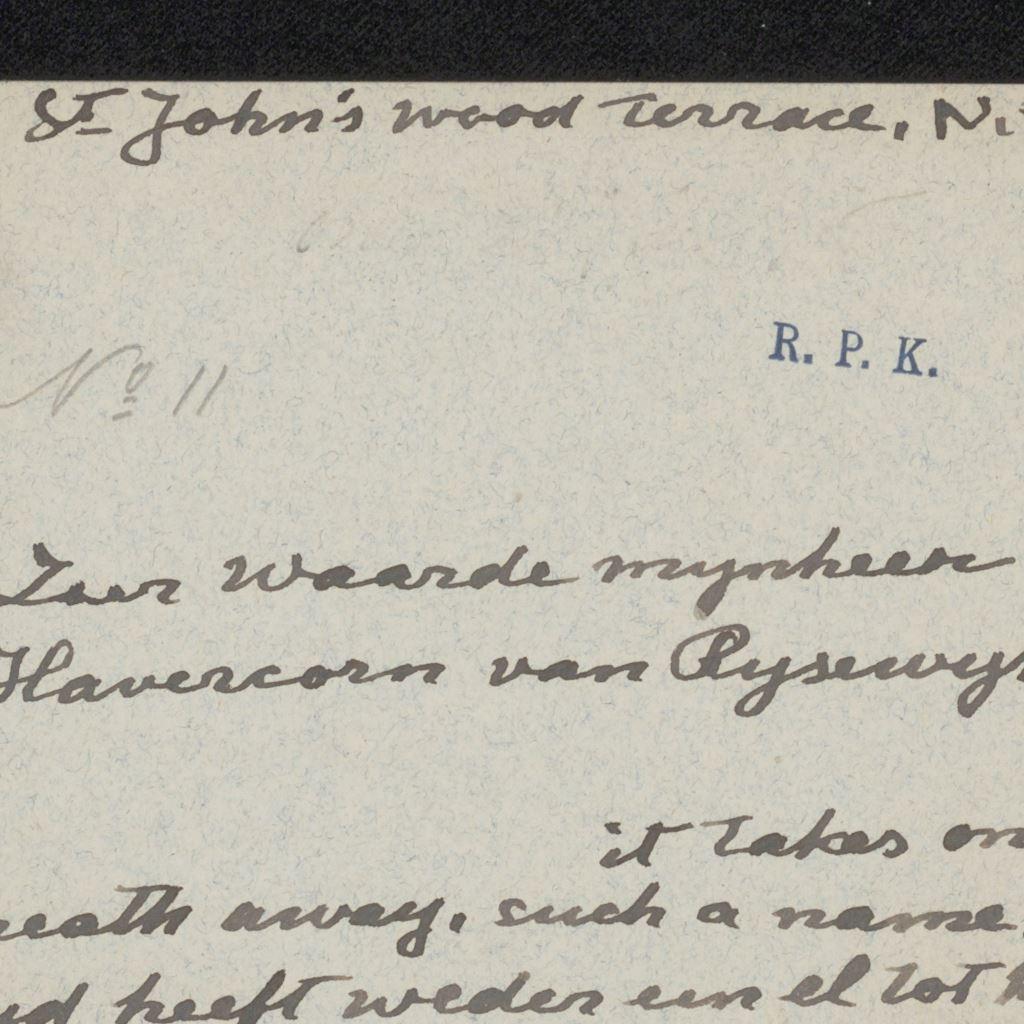 St John's Wood Terrace, N.
R. P. K.
No 11
Zeer Waarde mynheer
Havercorn van Rysewyk
it takes on
breath away, such a name.
heeft weder een el tot